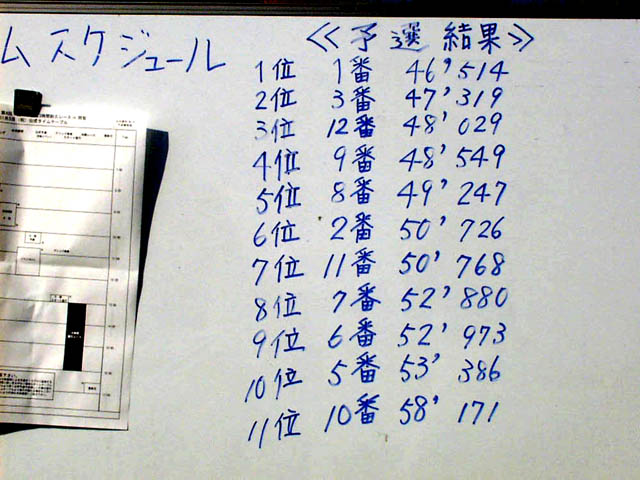 ムスケジュール
≪予選結果≫
1位 1番 46'514
2位 3番 47'319
3位 12番 48'029
4位 9番 48'549
5位 8番 49'247
6位 2番 50'726
7位 11番 50'768
8位 7番 52'880
9位 6番 52'973
10位 5番 53'386
11位 10番 58'171